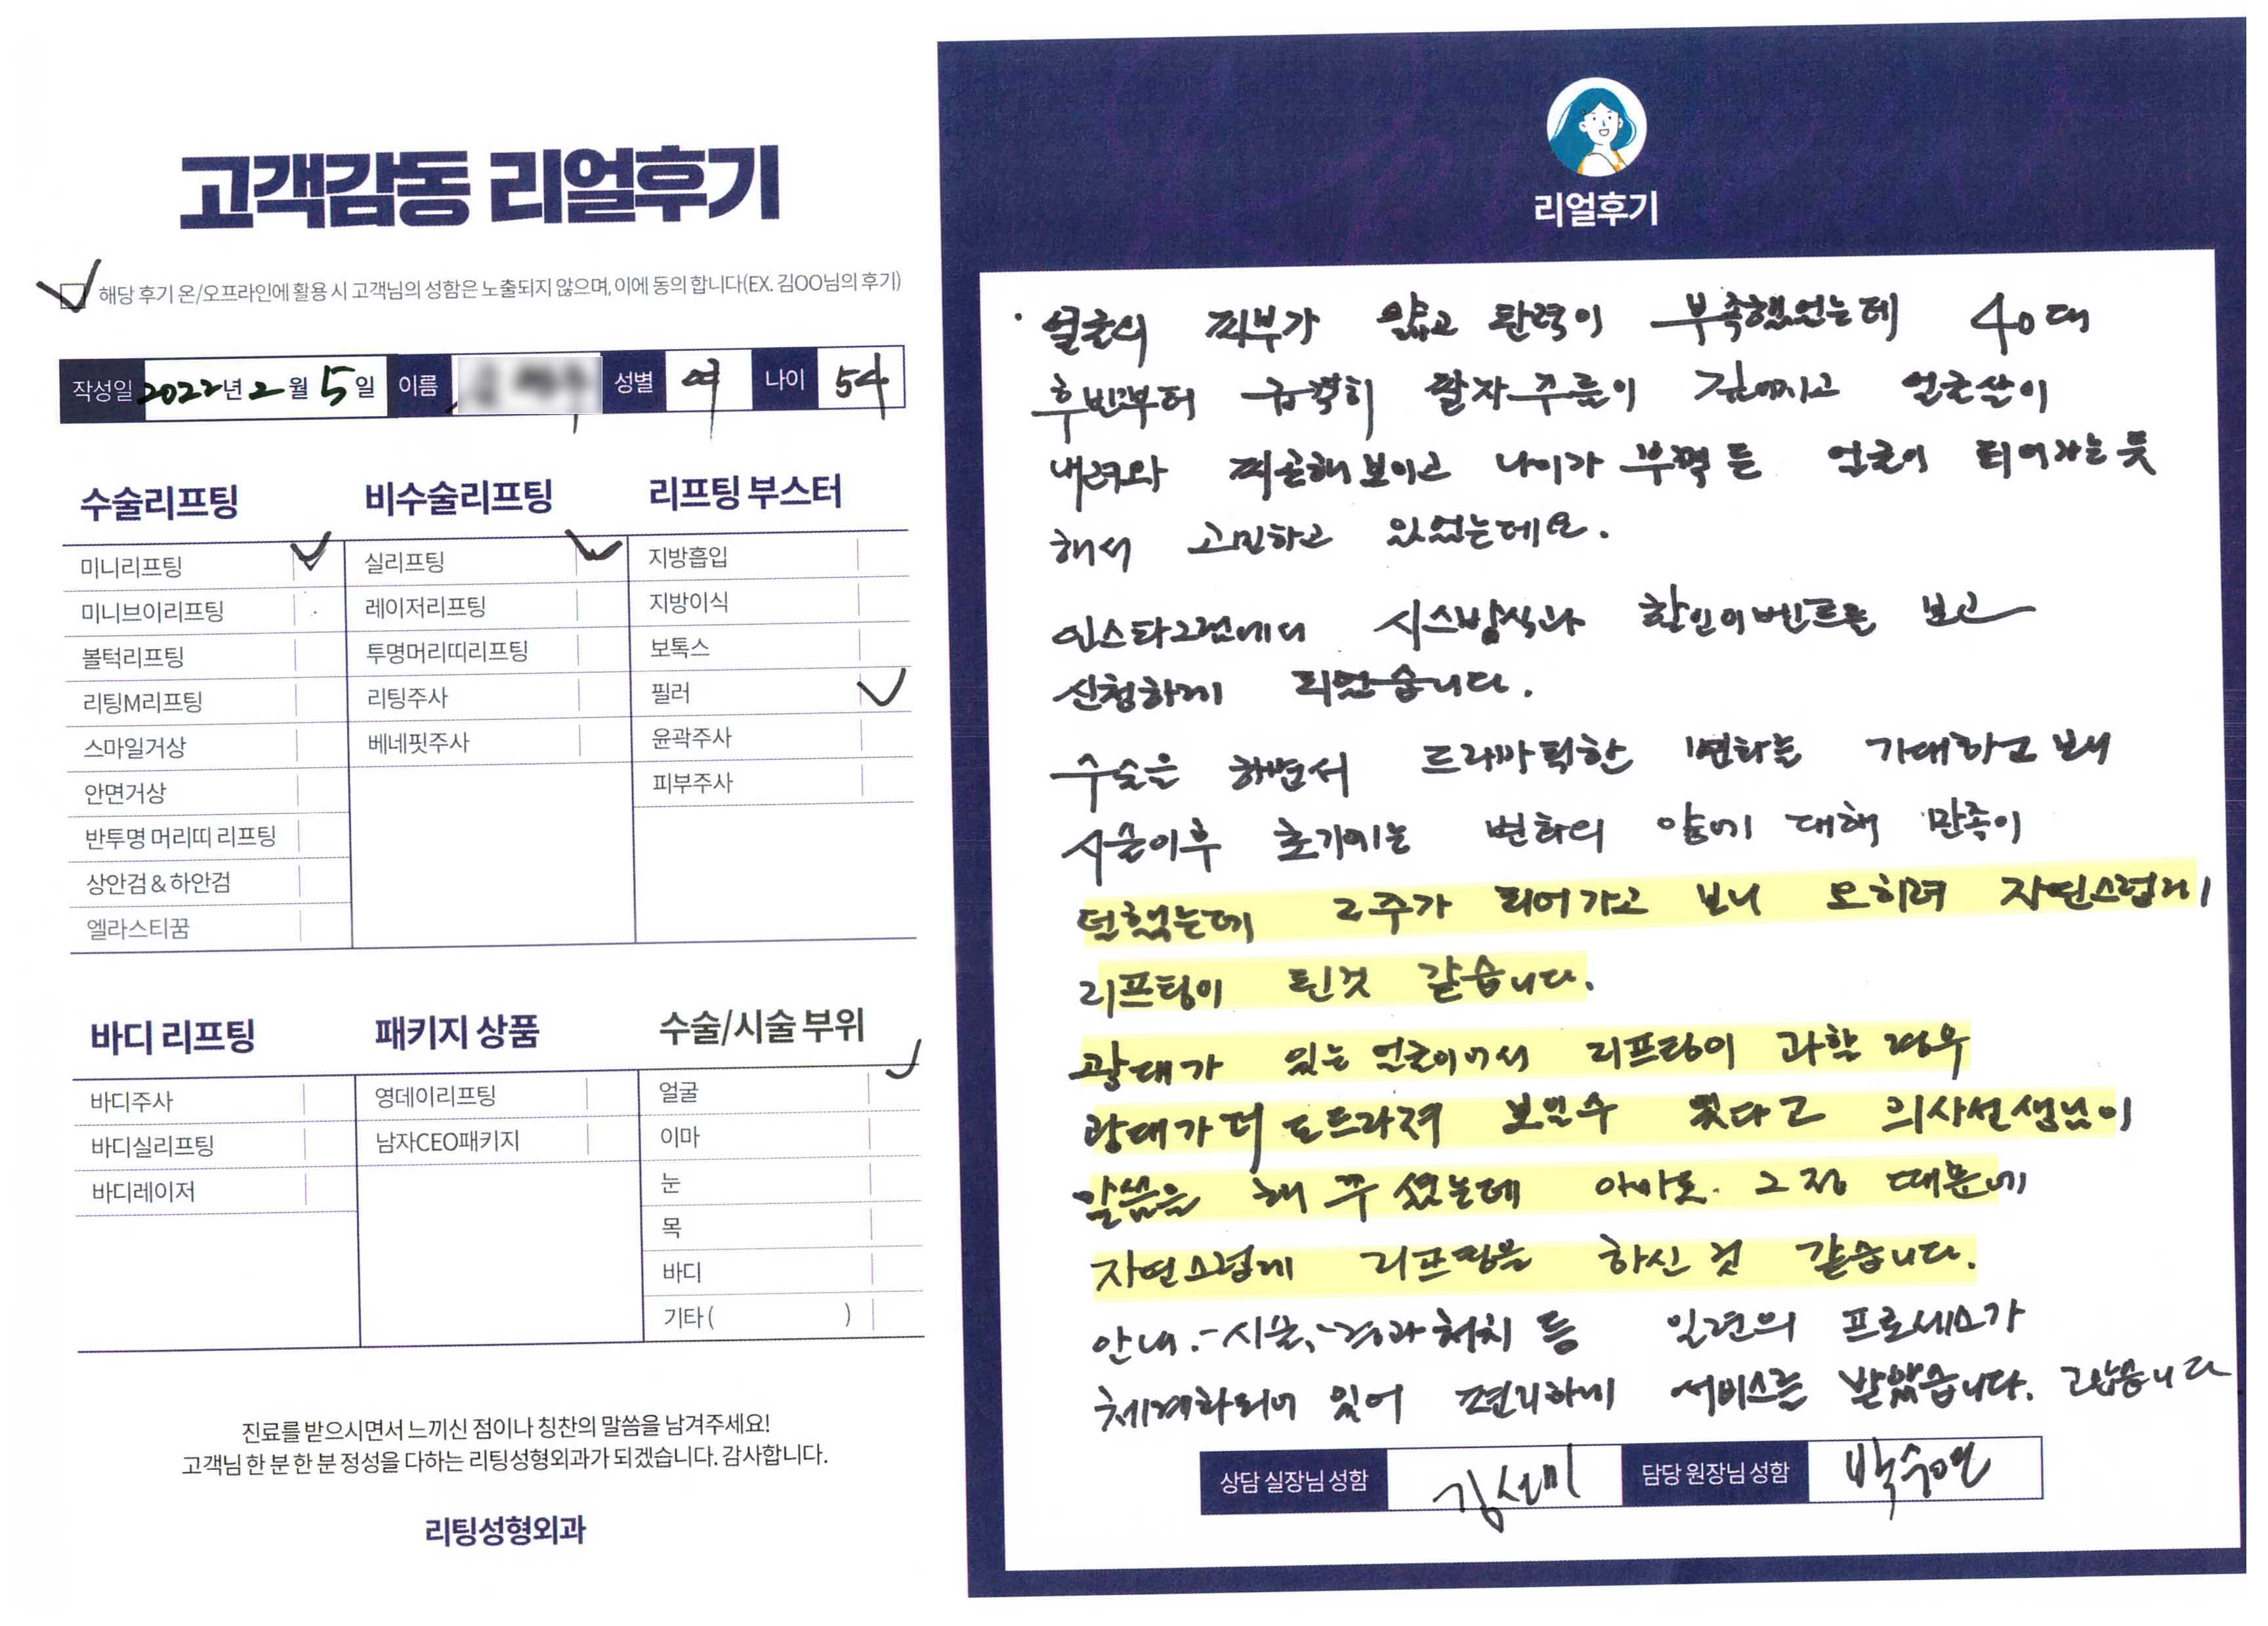 고객감동 리얼후기
해당 후기 온/오프라인에 활용 시 고객님의 성함은 노출되지 않으며, 이에 동의 합니다(EX. 김OO님의 후기)
작성일 2022년 2월 5일 이름 성별 여 나이 54
수술리프팅
미니리프팅
미니브이리프팅
볼턱리프팅
리팅M리프팅
스마일거상
안면거상
반투명 머리띠 리프팅
상안검 & 하안검
엘라스티꿈
비수술리프팅
실리프팅
레이저리프팅
투명머리띠리프팅
리팅주사
베네핏주사
리프팅 부스터
지방흡입
지방이식
보톡스
필러
윤곽주사
피부주사
바디 리프팅
바디주사
바디실리프팅
바디레이저
패키지 상품
영데이리프팅
남자CEO패키지
수술/시술 부위
얼굴
이마
눈
목
바디
기타 ( )
진료를 받으시면서 느끼신 점이나 칭찬의 말씀을 남겨주세요!
고객님 한 분 한 분 정성을 다하는 리팅성형외과가 되겠습니다. 감사합니다.
리팅성형외과
리얼후기
· 얼굴의 피부가 얇고 탄력이 부족했었는데 40대
후반부터 급격히 팔자주름이 깊어지고 얼굴살이
내려와 피곤해보이고 나이가 부쩍 든 얼굴이 되어가는 듯
해서 고민하고 있었는데요.
인스타그램에서 시스방식과 할인이벤트를 보고
신청하게 되었습니다.
수술을 하면서 드라마틱한 변화를 기대하고 보내
시술이후 초기에는 변화의 양에 대해 만족이
덜했는데 2주가 되어가고 보니 오히려 자연스럽게
리프팅이 된것 같습니다.
광대가 있는 얼굴이어서 리프팅이 과할 경우
광대가 더 도드라져 보일수 있다고 의사선생님이
말씀을 해 주셨는데 아마도. 그점 때문에
자연스럽게 리프팅을 하신 것 같습니다.
안내.-시술,-경과처치 등 일련의 프로세스가
체계화되어 있어 편리하게 서비스를 받았습니다. 고맙습니다
상담 실장님 성함 김선미 담당 원장님 성함 박수연